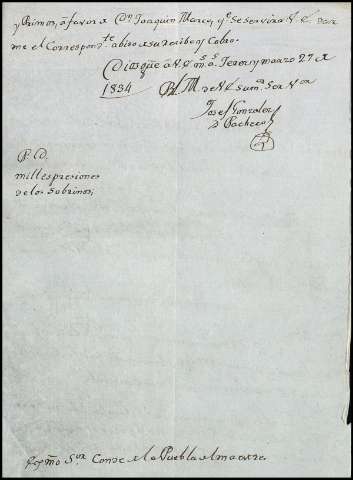 y Primos, á favor de Dn Joaquin Marcò, y se servira V. E. dar
me el Correspondte abiso de su recibo y Cobro.
Dios gue á V. E. ms as Jerez y marzo 27 de
1834
B. L. M. de V. E. su mas Ser. Dor
Josef Gonzalez
Pacheco
P. D.
mill espresiones
de los Sobrinos,
Exmo Sor Conde de la Puebla del maestre.